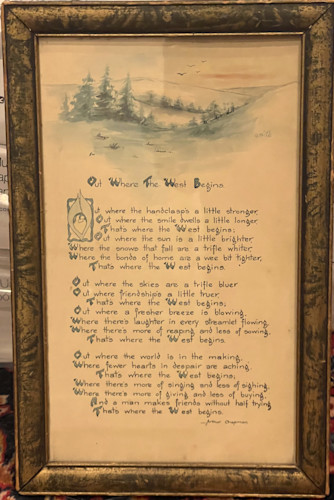 Out Where The West Begins
Out where the handclasp's a little stronger,
Out where the smile dwells a little longer
That's where the West begins;
Out where the sun is a little brighter,
Where the snows that fall are a trifle whiter,
Where the bonds of home are a wee bit tighter,
That's where the West begins.
Out where the skies are a trifle bluer
Out where friendship's a little truer,
That's where the West begins;
Out where a fresher breeze is blowing,
Where there's laughter in every streamlet flowing,
Where there's more of reaping and less of sowing,
That's where the West begins.
Out where the world is in the making,
Where fewer hearts in despair are aching,
That's where the West begins;
Where there's more of singing and less of sighing,
Where there's more of giving and less of buying,
And a man makes friends without half trying
That's where the West begins.
Arthur Chapman